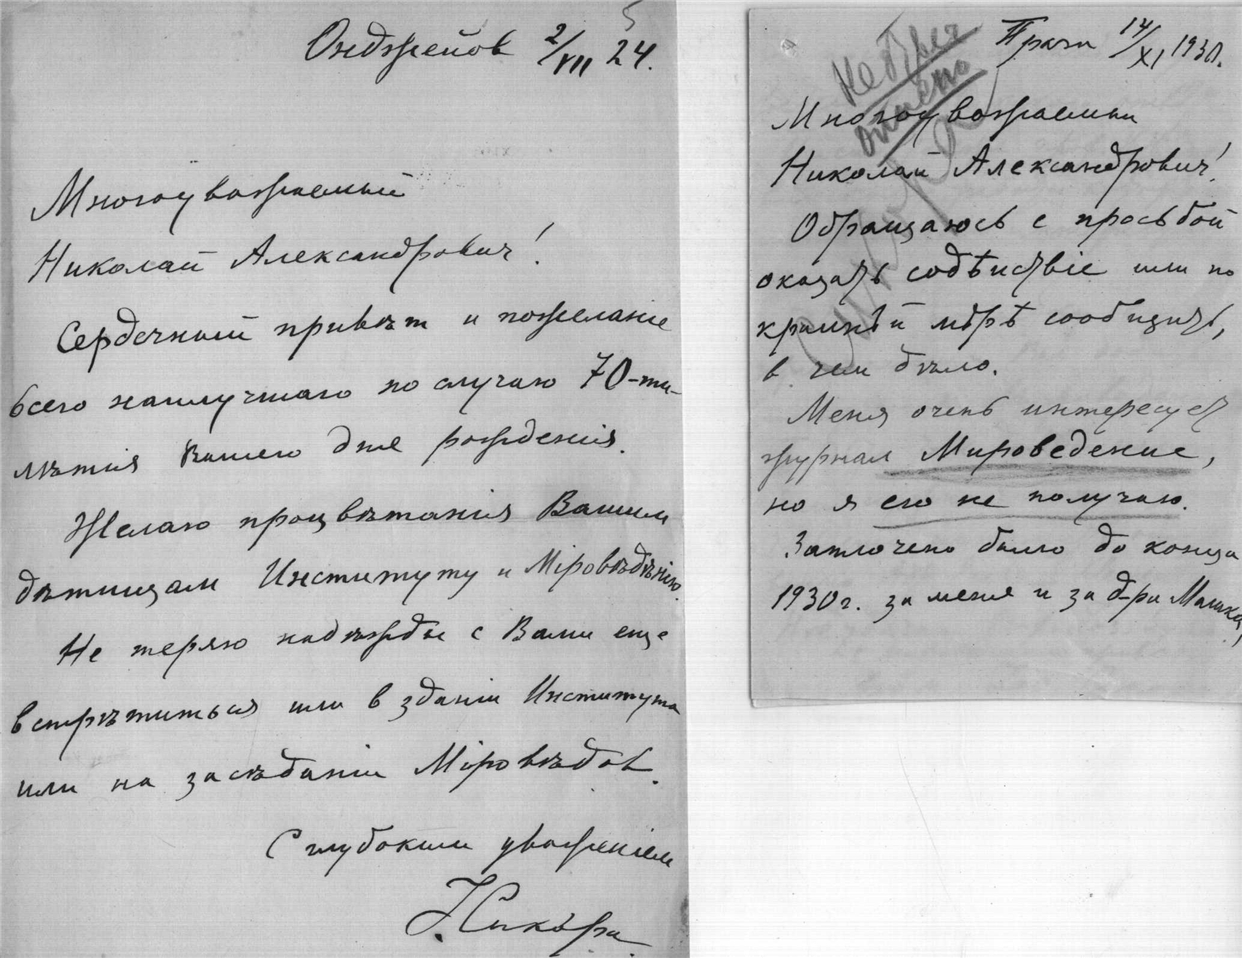 Онджейов 2/VII 24.
Многоуважаемый
Николай Александрович!
Сердечный привѣт и пожеланіе
всего наилучшаго по случаю 70-ти-
лѣтія Вашего дня рожденія.
Желаю процвѣтанія Вашим
дѣтищам Институту и Міровѣдѣнію.
Не теряю надежды с Вами еще
встрѣтиться или в зданіи Института
или на засѣданіи Міровѣдов.
С глубоким уваженіем
Прага 14/XI 1930.
Многоуважаемый
Николай Александрович!
Обращаюсь с просьбой
оказать содѣйствіе или по
крайнѣй мѣрѣ сообщить,
в чем дѣло.
Меня очень интересует
журнал Мироведение,
но я его не получаю.
Заплочено было до конца
1930 г. за меня и за д-ра